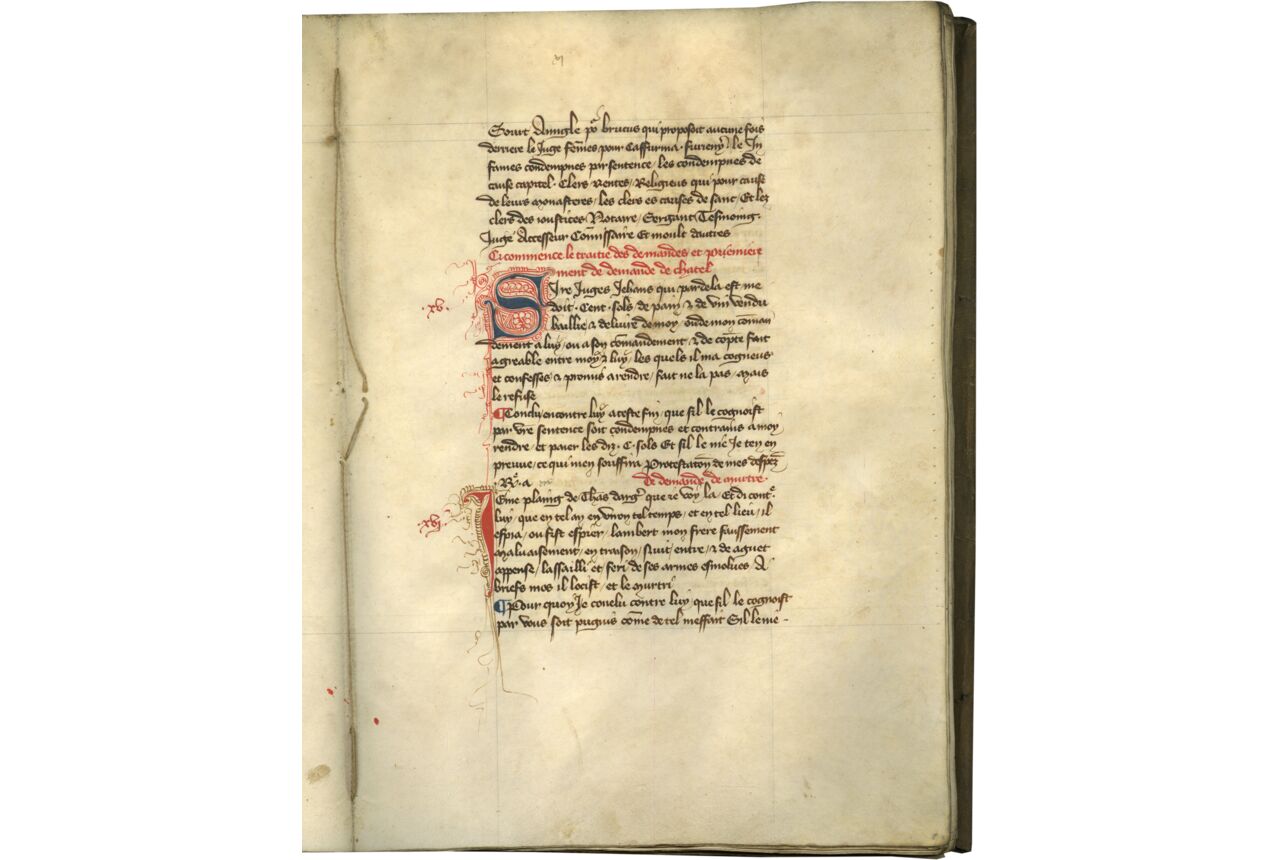 vj
Sourt Avugle po͛ brucus qui proposoit aucune fois
derriere le Juge fem̃es pour Caffurnia · furieux / le In
fames cõdempnes par sentence / les condempnes de
cause capitel · Clers Rentes / Religieus qui pour cause
de leurs monasteres / les clers es causes de sanc / Et lez
clers des ioustices Notaire / Sergant Tesmoing ·
Juge Accesseur Com̃issaire Et moult dautres
Ci commence le traitie des demandes et premiere
ment de demande de chatel
xv
Sire Juges Jehans qui par dela est me
doit · Cent · sols de pain ⁊ de vin vendu
baillie ⁊ delivre de moy / ou de mon com̃an
dement a luy / ou a son com̃andement ⁊ de cõpte fait
agreable entre moy ⁊ luy / les quels il ma cogneus
et confesses ⁊ promis a rendre / fait ne la pas / mais
le refuse
¶ Conclu encontre luy a ceste fin / que sil le cognoist
par vr̃e sentence soit condempnes et contrains a moy
rendre / et paier les diz · C · sols Et sil le nie Je ten en
preuve / ce qui men souffira Protestatõn de mes despz̃
De demande de murtre ·
xvj
Je me plaing de Thas darg̃ que ie voy la Et di cont͛
luy / que en tel an en viron tel temps / et en tel lieu / il
espia / ou fist espier / lambert mon frere faussement
malvaisement / en traison / Nuit / entre / ⁊ de aguet
appense / lassailli et feri de ses armes esmolues A
briefs mos il locist / et le murtri
¶ Pour quoy Je conclu contre luy / que sil le cognoist
par vous soit pugnis com̃e de tel meffait Sil le nie ·